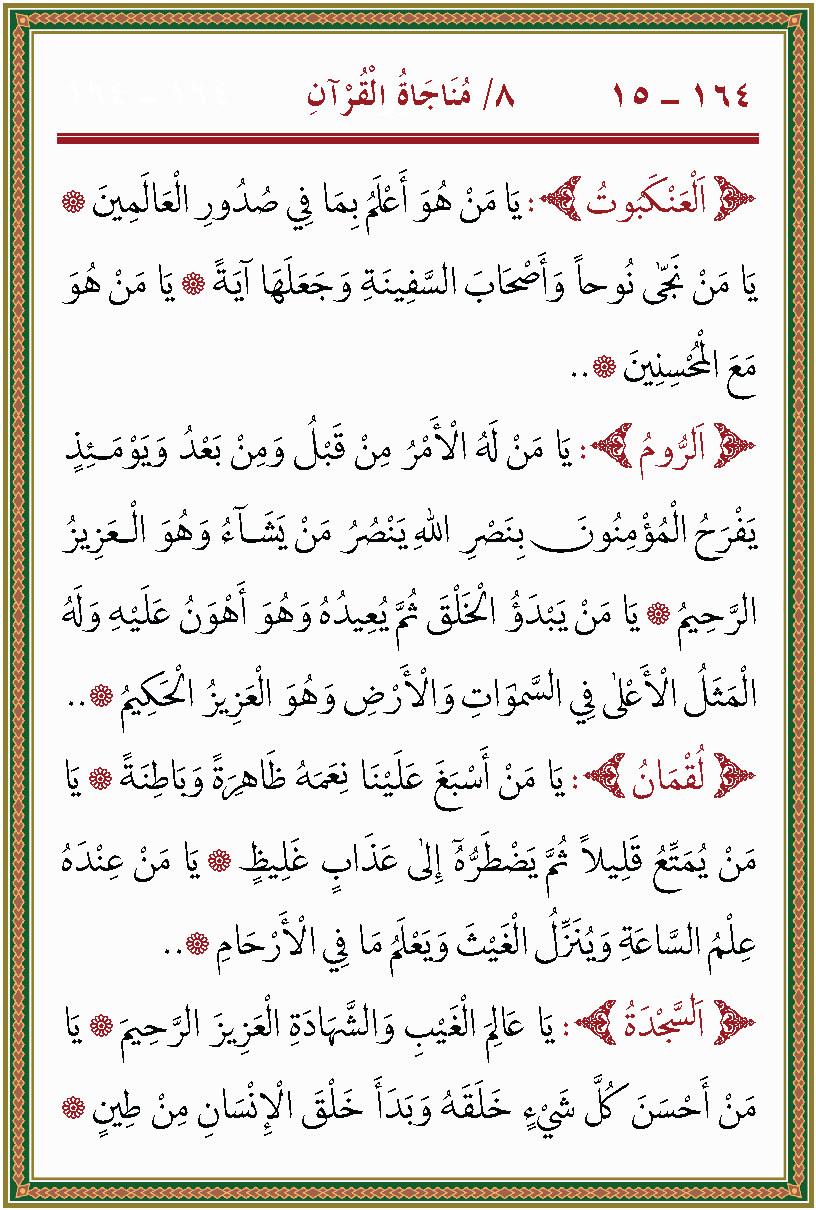 ١٦٤ – ١٥ ٨/ مُنَاجَاةُ الْقُرْآنِ ١٦٤ – ١٦٤
﴿ اَلْعَنْكَبُوتُ ﴾: يَا مَنْ هُوَ أَعْلَمُ بِمَا فِي صُدُورِ الْعَالَمِينَ ۞
يَا مَنْ نَجّٰى نُوحاً وَأَصْحَابَ السَّفِينَةِ وَجَعَلَهَا آيَةً ۞ يَا مَنْ هُوَ
مَعَ الْمُحْسِنِينَ ۞..
﴿ اَلرُّومُ ﴾: يَا مَنْ لَهُ الْأَمْرُ مِنْ قَبْلُ وَمِنْ بَعْدُ وَيَوْمَـئِـذٍ
يَفْرَحُ الْمُؤْمِنُونَ بِنَصْرِ اللهِ يَنْصُرُ مَنْ يَشَـآءُ وَهُوَ الْعَـزِيزُ
الرَّحِيمُ ۞ يَا مَنْ يَبْدَؤُ الْخَلْقَ ثُمَّ يُعِيدُهُ وَهُوَ أَهْوَنُ عَلَيْهِ وَلَهُ
الْمَثَلُ الْأَعْلٰى فِي السَّمٰوَاتِ وَالْأَرْضِ وَهُوَ الْعَزِيزُ الْحَكِيمُ ۞..
﴿ لُقْمَانُ ﴾: يَا مَنْ أَسْبَغَ عَلَيْنَا نِعَمَهُ ظَاهِرَةً وَبَاطِنَةً ۞ يَا
مَنْ يُمَتِّعُ قَلِيلاً ثُمَّ يَضْطَرُّهُٓ إِلٰى عَذَابٍ غَلِيظٍ ۞ يَا مَنْ عِنْدَهُ
عِلْمُ السَّاعَةِ وَيُنَزِّلُ الْغَيْثَ وَيَعْلَمُ مَا فِي الْأَرْحَامِ ۞..
﴿ اَلسَّجْدَةُ ﴾: يَا عَالِمَ الْغَيْبِ وَالشَّهَادَةِ الْعَزِيزَ الرَّحِيمَ ۞ يَا
مَنْ أَحْسَنَ كُلَّ شَيْءٍ خَلَقَهُ وَبَدَأَ خَلْقَ الْإِنْسَانِ مِنْ طِينٍ ۞